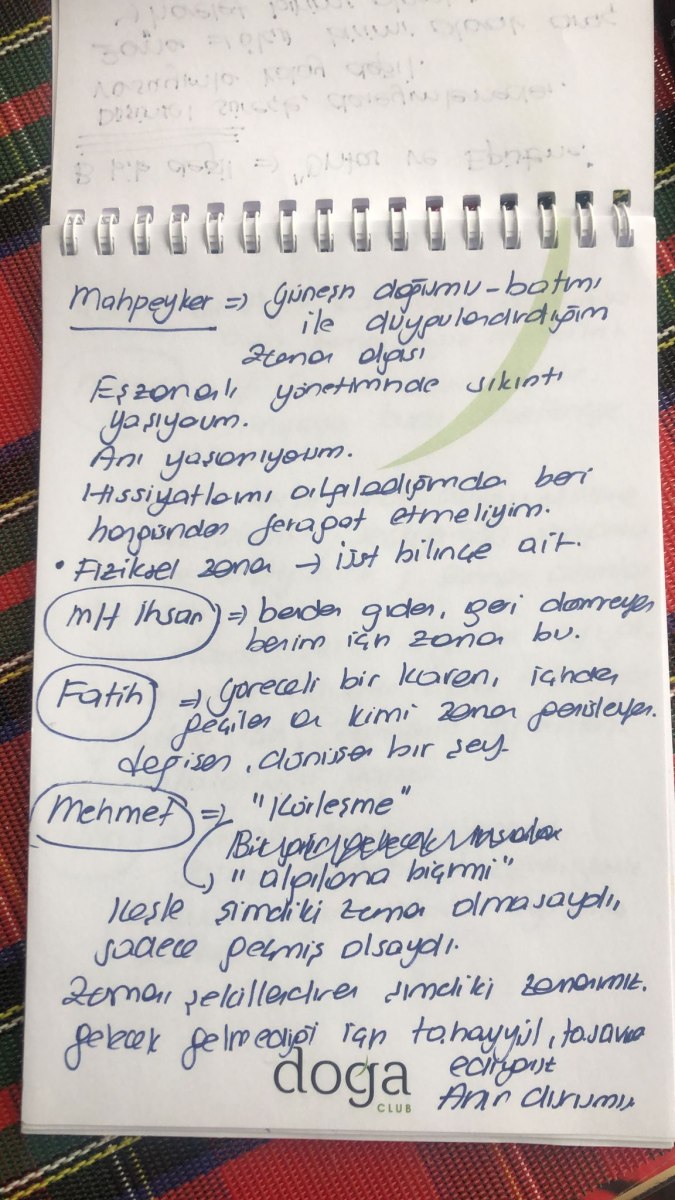 Mahpeyker => Güneşn doğumu-batımı
ile duygulandırdığım
zaman algısı
Eşzamalı yönetiminde sıkıntı
yaşıyoum.
Anı yaşanıyorum.
Hissiyatlamı algıladığımda beri
hazgünden feragat etmeliyim.
• Fiziksel zaman → üst bilinçe ait.
MH İhsan => benden giden, geri dönmeyen
benim için zaman bu.
Fatih => göreceli bir kavram, içinden
geçilen ve kimi zaman genişleyen.
değişen, dönüşen bir şey
Mehmet => "Körleşme"
"algılama biçimi"
Keşke şimdiki zaman olmasaydı,
sadece geçmiş olsaydı.
Zamanı şekillendiren şimdiki zanamız.
gelecek gelmediği için tahayyül, tasavvur
ediyoruz
Anın durumu
doğa
CLUB